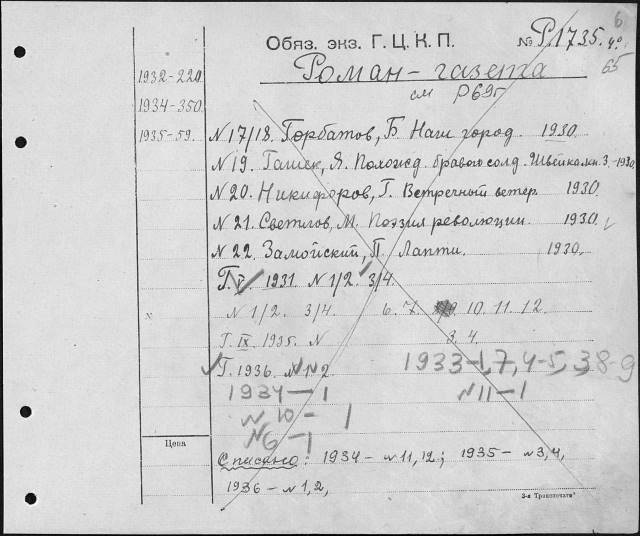 6
Обяз. экз. Г. Ц. К. П. № Р.1735. 4°
Роман-газета 65
см Р695
1932-220
1934-350.
1935-59.
N 17/18. Горбатов, Б. Наш город. 1930.
N 19. Гашек, Я. Похожд. бравого солд. Швейка. кн. 3.-1930.
N 20. Никифоров, Г. Встречный ветер. 1930.
N 21. Светлов, М. Поэзия революции. 1930.
N 22. Замойский, П. Лапти. 1930.
Г. V. 1931. N 1/2. 3/4.
x N 1/2. 3/4. 6. 7. 10. 11. 12.
Г. IX. 1935. N 3. 4.
Г. 1936. N 1 2 1933-1,7,4-5,3,8-9
1934-1 N11-1
N 10 - 1
N6 -1
Цена
Списано: 1934- N 11, 12; 1935- N 3, 4,
1936- N 1, 2,
3-я Транспечать